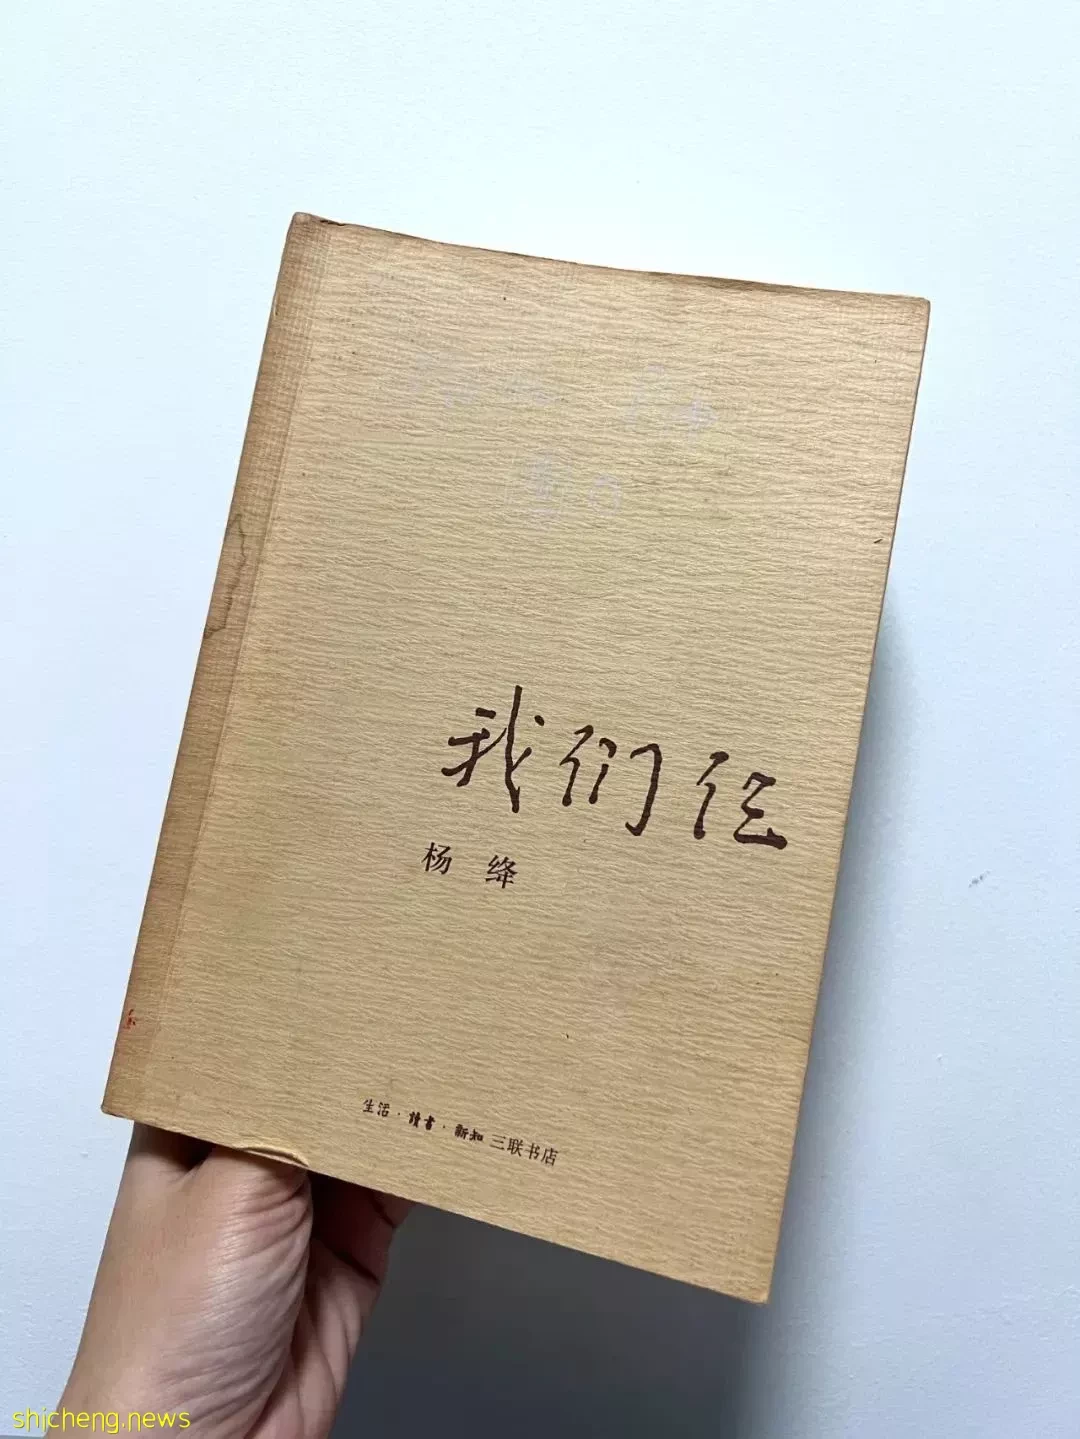 我们仨
杨 绛
生活·讀書·新知 三联书店
shicheng.news